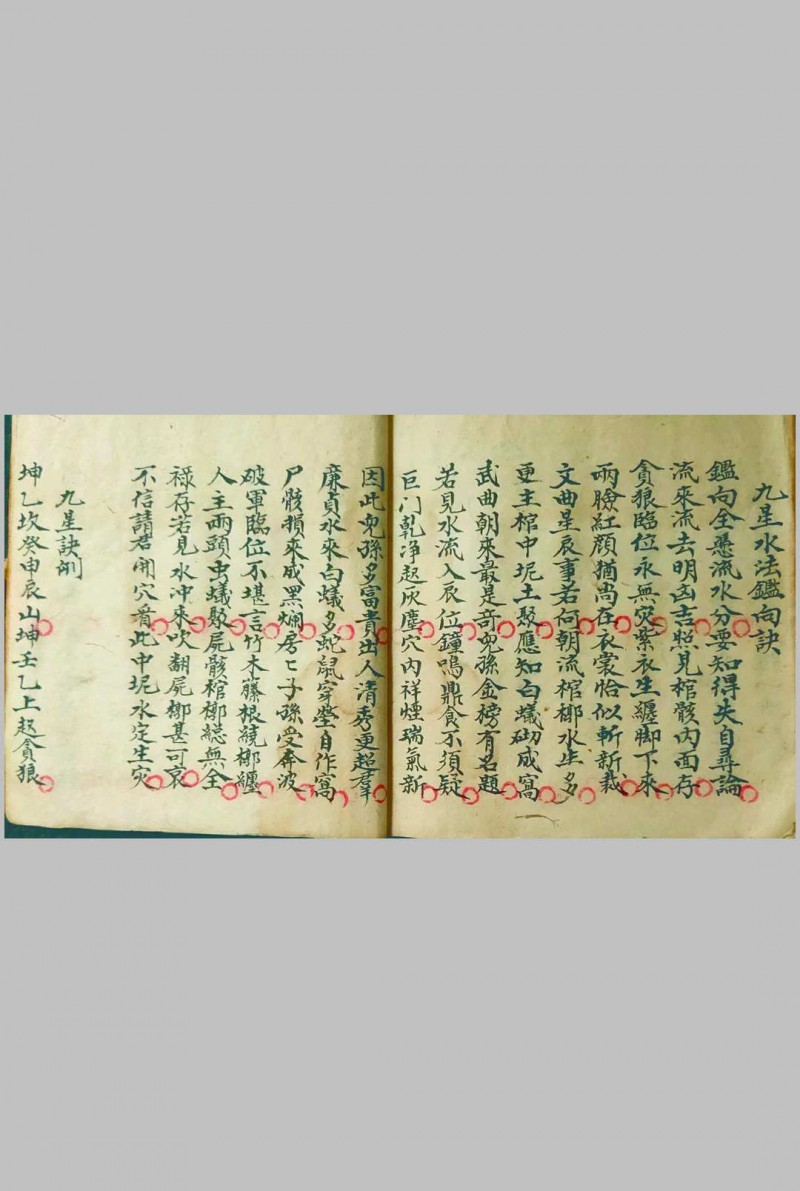 九星水法鑑向訣
鑑向全憑流水分要知得失自尋論
流來流去明凶吉照見棺骸內面存
貪狼臨位永無灾紫衣生纏脚下來
兩臉紅顏猶尚在衣裳恰似斬新裁
文曲星辰事若何朝流棺槨水生多
更主棺中坭土駁應知白蟻砌成窩
武曲朝來最是竒兒孫金榜有名題
若見水流入辰位鐘鳴鼎食不須疑
巨门乾净起灰塵穴内祥煙瑞氣新
因此兒孫多富貴出人清秀更超羣
廉貞水來白蟻多蛇鼠穿塋自作窩
尸骸損來成黑爛房〻子孫受奔波
破軍臨位不堪言竹木藤根繞槨纏
人主兩頭虫蟻駁屍骸棺槨總無全
禄存若見水冲來吹翻屍槨甚可哀
不信請君開穴看此中坭水定生灾
九星訣例
坤乙坎癸申辰山坤壬乙上起貪狼